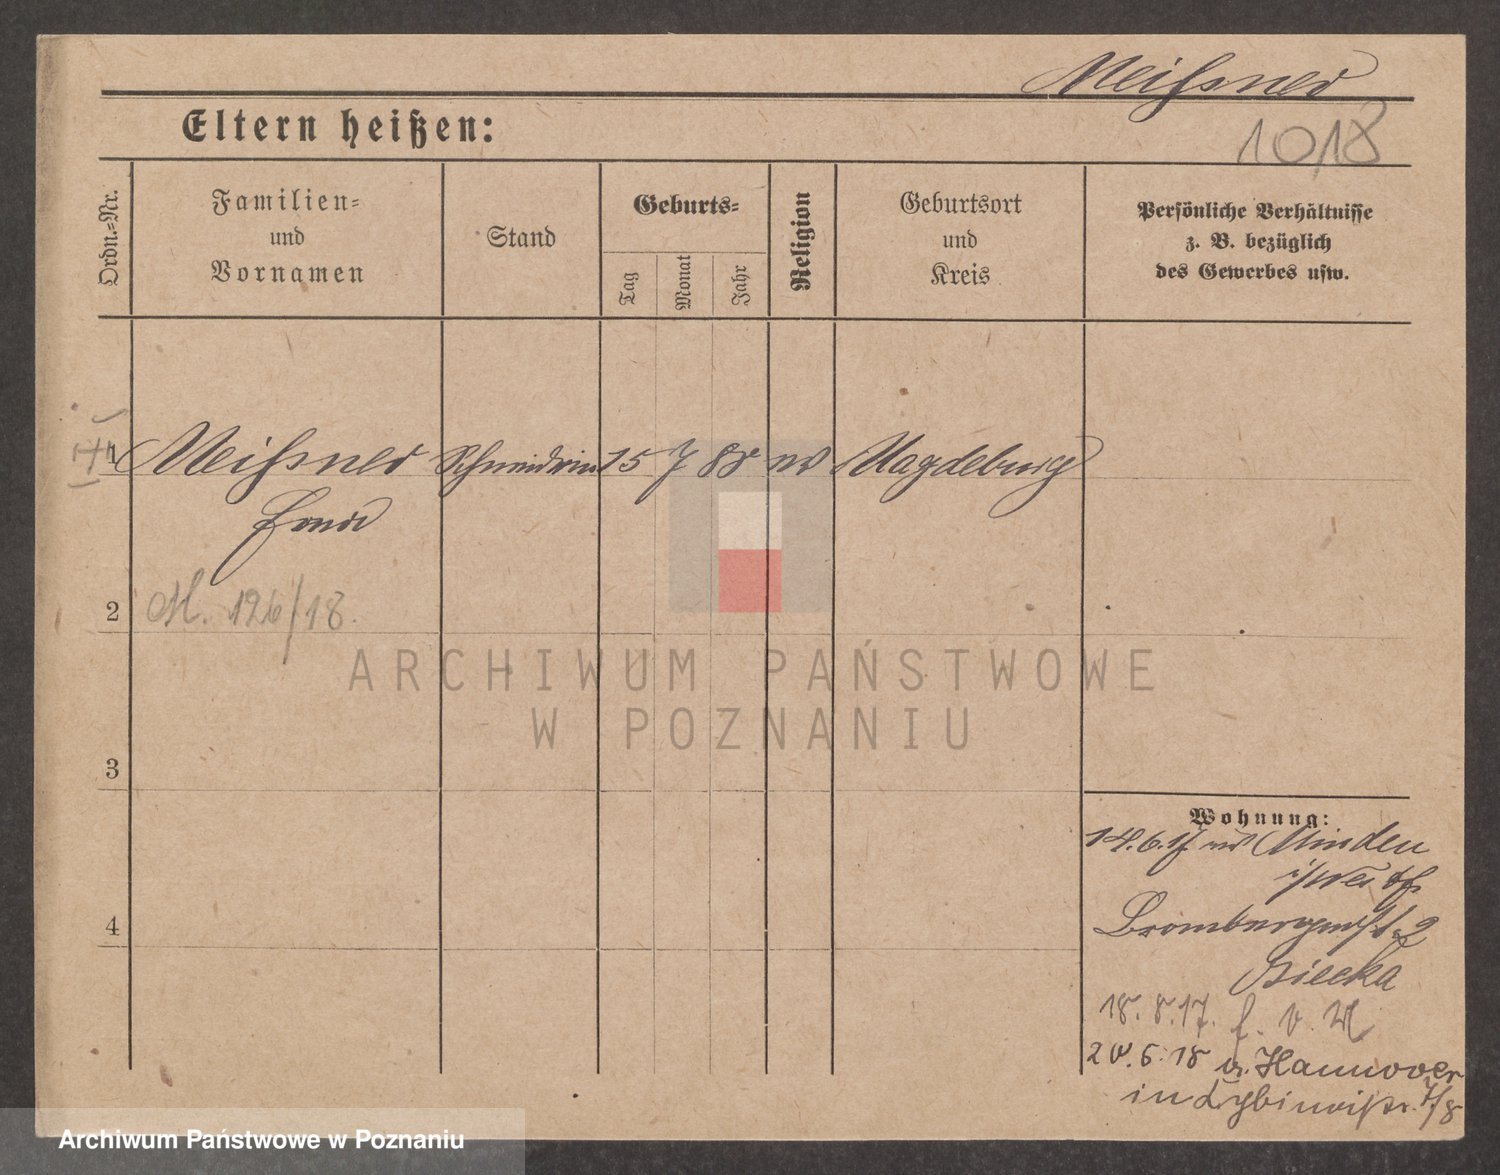 Meißner
Eltern heißen:
1018
Ordn.-Nr.
Familien-
und
Vornamen
Stand
Geburts-
Tag
Monat
Jahr
Religion
Geburtsort
und
Kreis
Persönliche Verhältnisse
z. B. bezüglich
des Gewerbes usw.
1 Meißner Schneiderin 15 7 88 Magdeburg
2 M. 126/18.
3
4
Wohnung:
14.6.17 Minden
i/Westf.
Brombergerst. 2
18.8.17. f. v. M
6.18 v. Hannover
in 7/8
ARCHIWUM PAŃSTWOWE
W POZNANIU
Archiwum Państwowe w Poznaniu